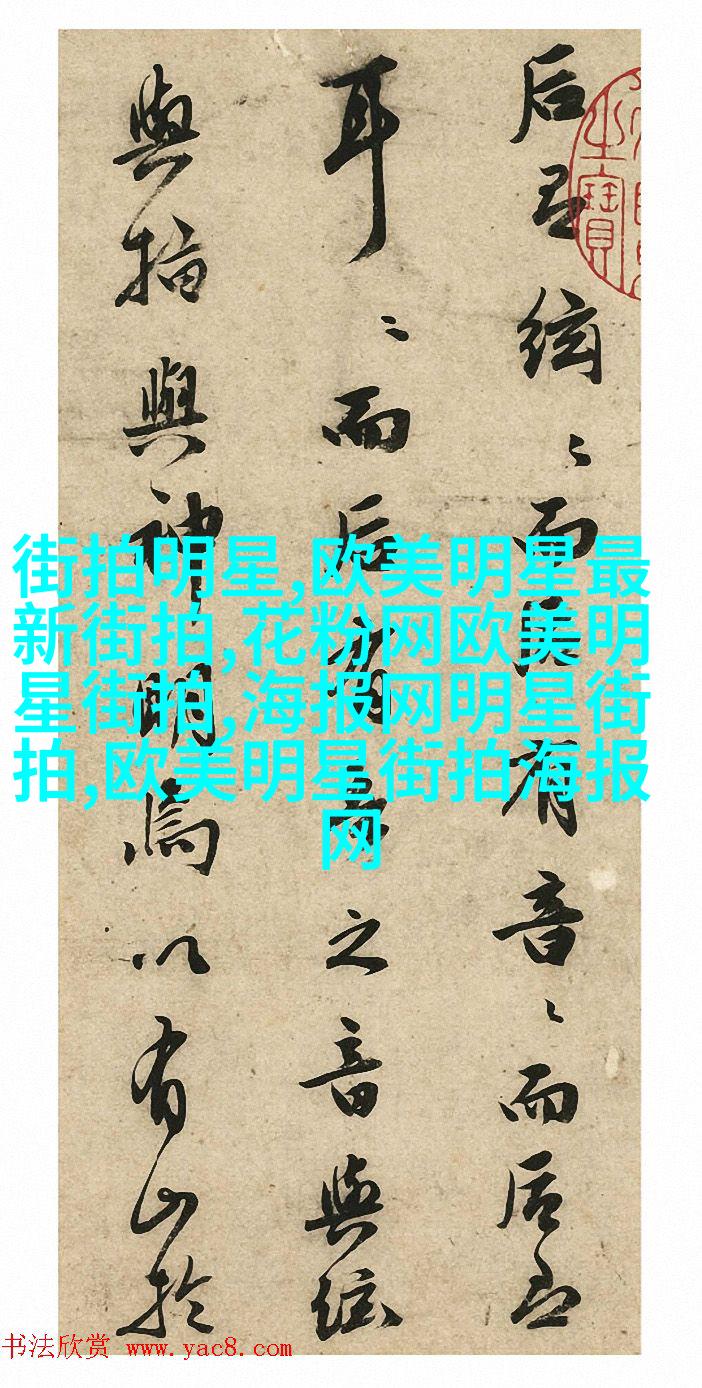 后絃〻而后有音〻而后
耳〻而后有無之音與絃
與指與神明焉以有山於
之寶
街拍明星,欧美明星最
新街拍,花粉网欧美明
星街拍,海报网明星街
拍,欧美明星街拍海报
网
书法欣赏 www.yac8.com